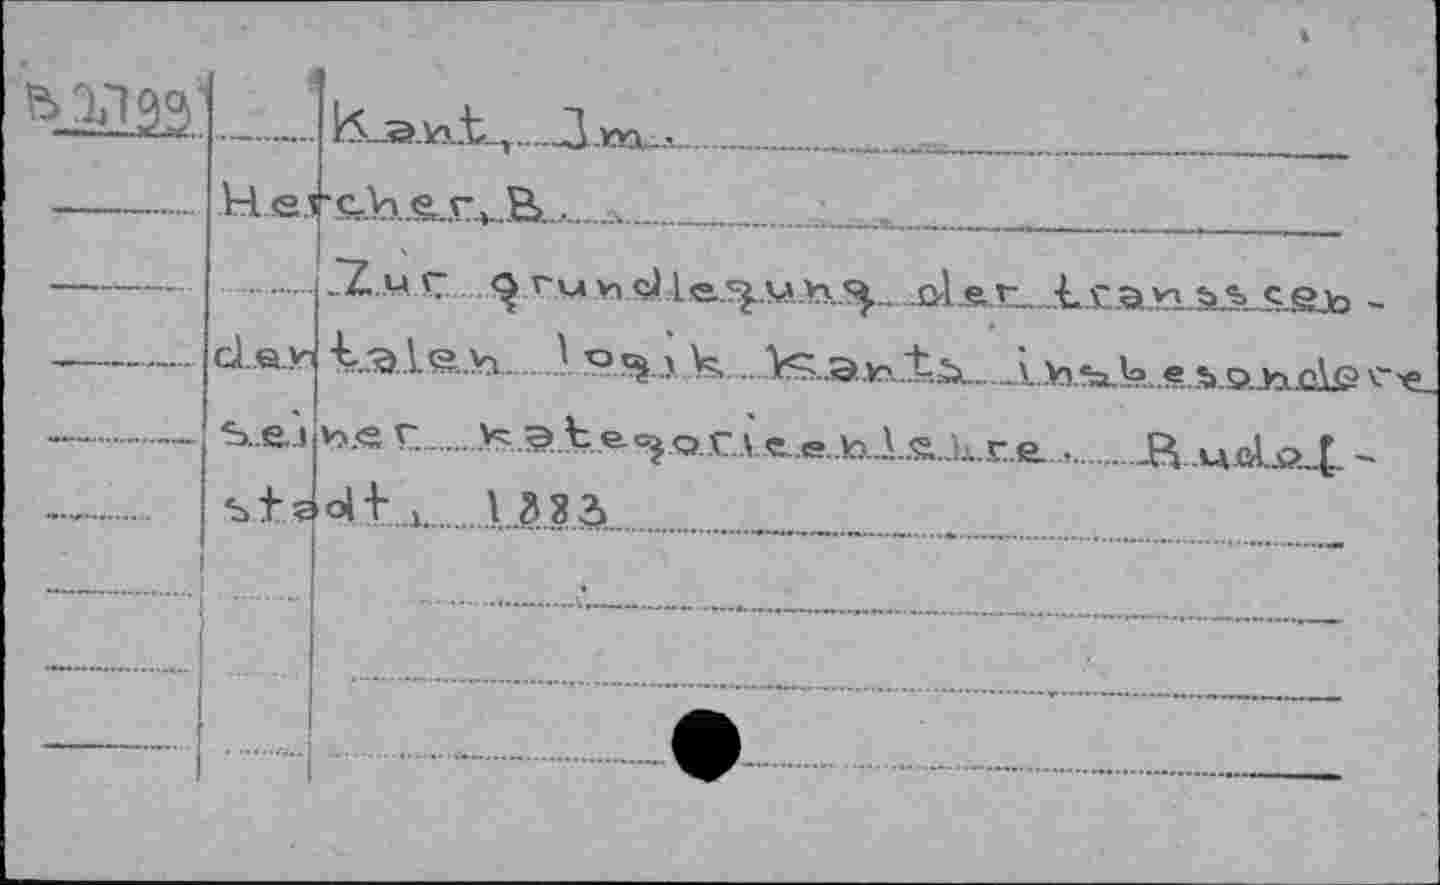 B2799
Kant, Im.
Hercher, B.
Zur Grundlegung der transscen-
dentalen Logik Kants insbesondere
seiner Kategorieenlehre. Rudol-
stadt, 1883